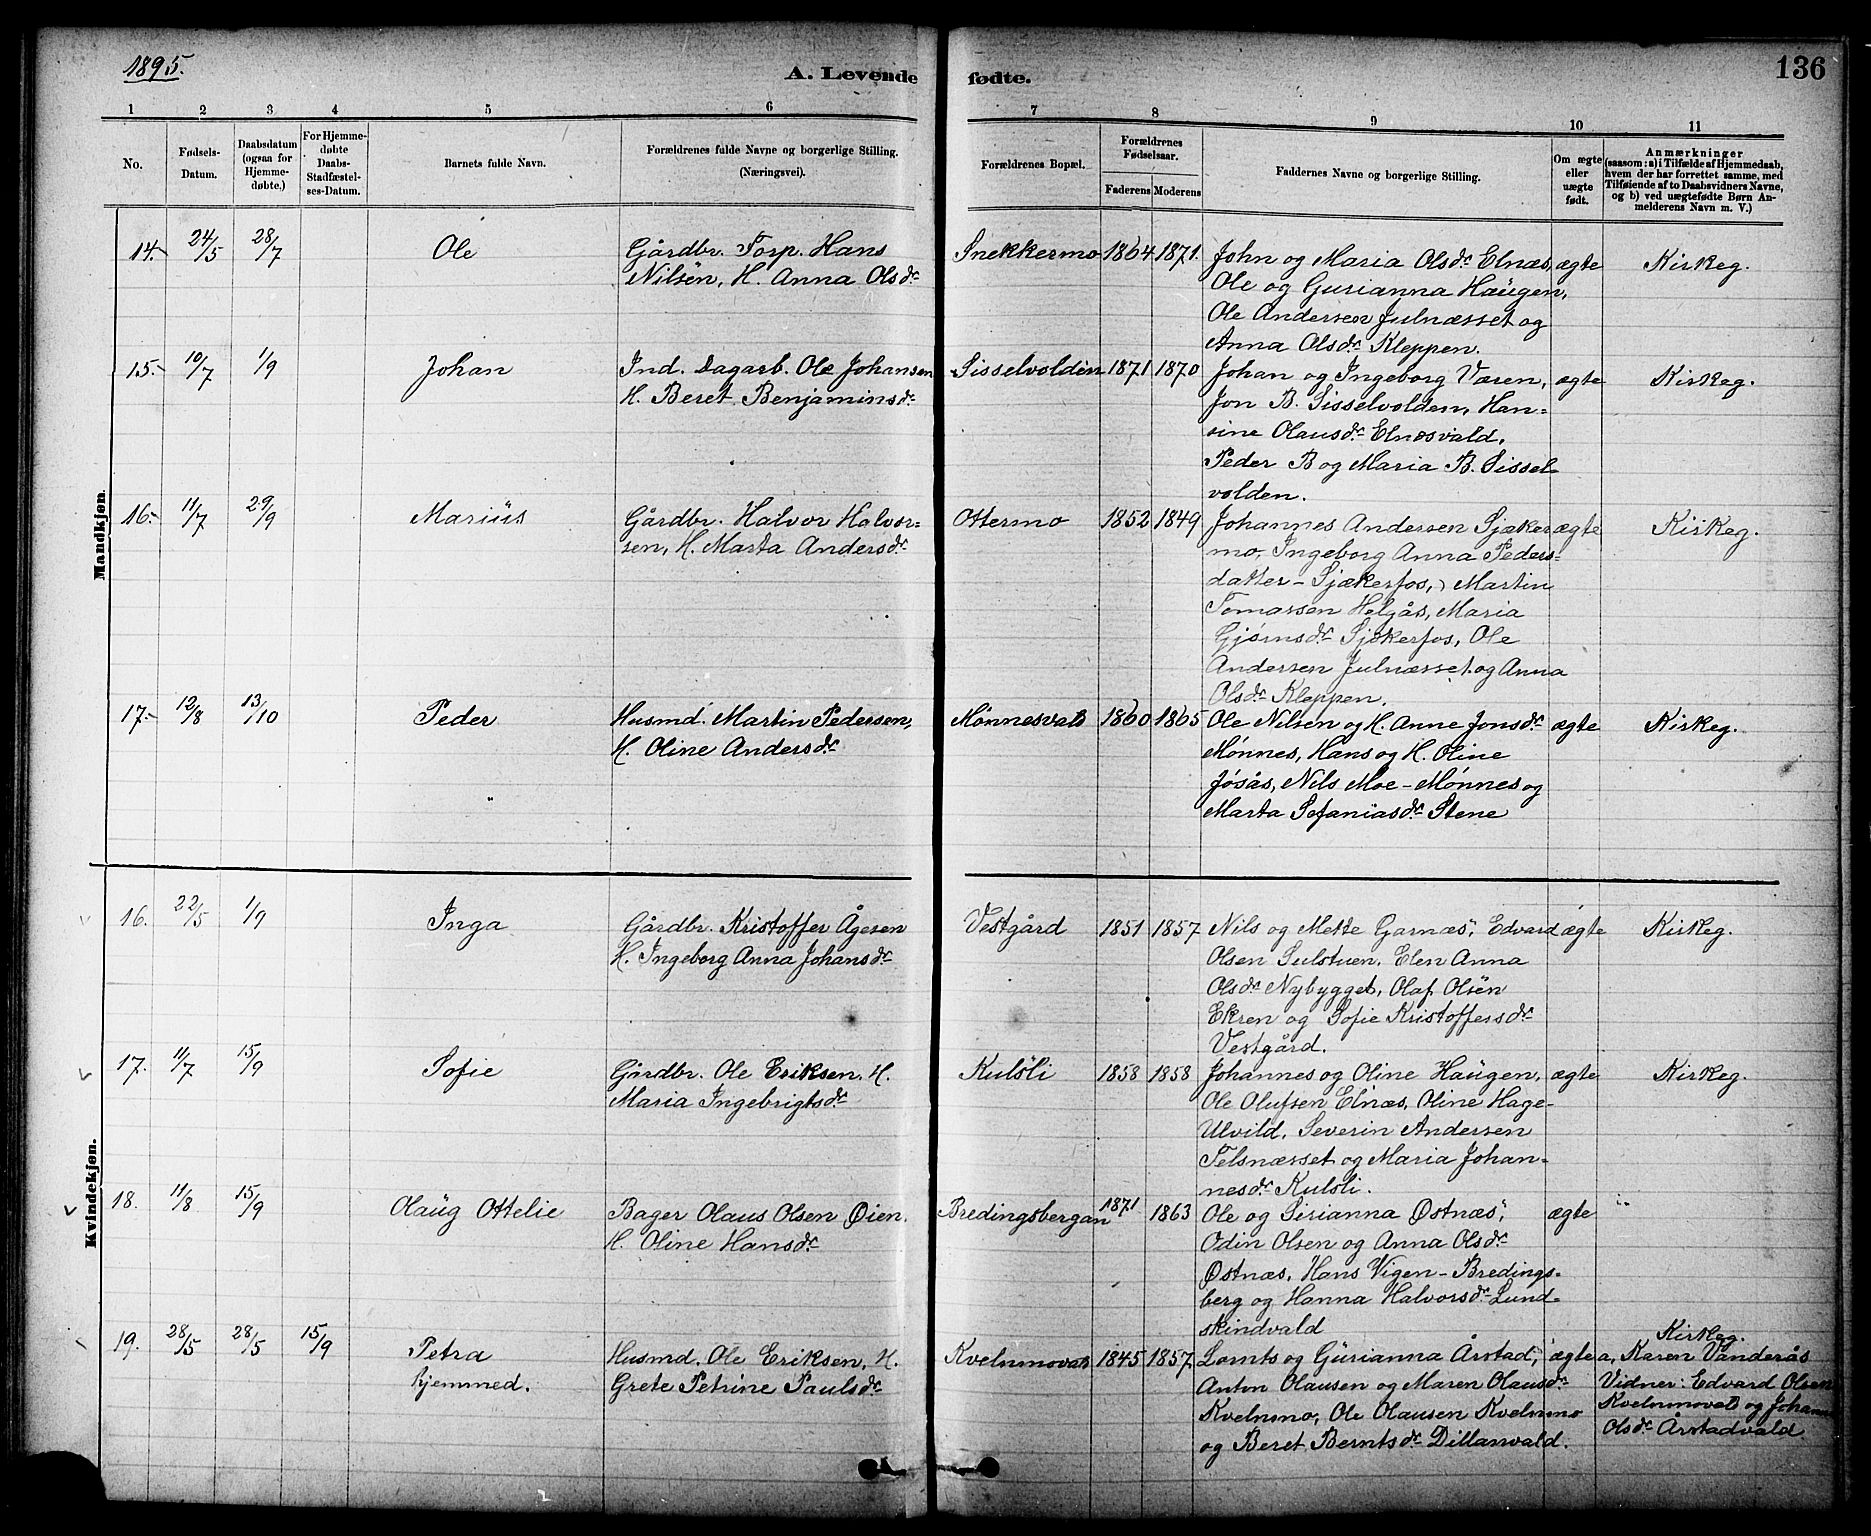 1895.
A. Levende fødte.
136
1 2 3 4 5 6 7 8 9 10 11
No.
Fødsels-
Datum.
Daabsdatum
(ogsaa for
Hjemme-
døbte.)
For Hjemme-
døbte
Daabs-
Stadfæstel-
ses-Datum.
Barnets fulde Navn.
Forældrenes fulde Navne og borgerlige Stilling.
(Næringsvei).
Forældrenes Bopæl.
Forældrenes
Fødselsaar.
Faderens Moderens
Faddernes Navne og borgerlige Stilling.
Om ægte
eller
uægte
født.
Anmærkninger
(saasom: a) i Tilfælde af Hjemmedaab,
hvem der har forrettet samme, med
Tilføiende af to Daabsvidners Navne,
og b) ved uægtefødte Børn An-
melderens Navn m. V.)
Mandkjøn.
14. 24/5 28/7 Ole
Gårdbr. Torp. Hans
Nilsen, H. Anna Olsdr
Snekkermo 1864 1871.
John og Maria Olsdr Elnæs,
Ole og Gurianna Haugen,
Ole Andersen Julnæsset og
Anna Olsdr Kleppen.
ægte Kirkeg.
15. 10/7 1/9 Johan
Ind. Dagarb. Ole Johansen
H. Beret Benjaminsdr
Sisselvolden 1871 1870
Johan og Ingeborg Væren,
Jon B. Sisselvolden, Han-
sine Olausdr Elnæsvald,
Peder B og Maria B. Sissel-
volden.
ægte Kirkeg.
16. 11/7 29/9 Marius
Gårdbr. Halvor Halvor-
sen, H. Marta Andersdr
Ottermo 1852 1849
Johannes Andersen Sjæker
mo, Ingeborg Anna Peders-
datter - Sjækerfos, Martin
Tomassen Helgås, Maria
Gjørnsdr Sjækerfos, Ole
Andersen Julnæsset og Anna
Olsdr Kleppen.
ægte Kirkeg.
17. 12/8 13/10 Peder
Husmd. Martin Pedersen,
H. Oline Andersdr
Mønnesvald 1860 1865
Ole Nilsen og H. Anne Jonsdr
Mønnes, Hans og H. Oline
Jøsås, Nils Moe - Mønnes og
Marta Sefaniasdr Stene
ægte Kirkeg.
Kvindekjøn.
16. 22/5 1/9 Inga
Gårdbr. Kristoffer Ågesen
H. Ingeborg Anna Johansdr
Vestgård 1851 1857
Nils og Mette Garnæs, Edvard
Olsen Sulstuen, Elen Anna
Olsdr Nybygget, Olaf Olsen
Ekren og Sofie Kristoffersdr
Vestgård.
ægte Kirkeg.
17. 11/7 15/9 Sofie
Gårdbr. Ole Eriksen. H.
Maria Ingebrigtsdr
Kulsli 1858 1858
Johannes og Oline Haugen,
Ole Olufsen Elnæs, Oline Hage-
Ulvild. Severin Andersen
Telsnæsset og Maria Johan-
nesdr Kulsli.
ægte Kirkeg.
18. 11/8 15/9 Olaug Ottelie
Bager Olaus Olsen Øien.
H. Oline Hansdr
Bredingsbergan 1871 1863
Ole og Sirianna Østnæs,
Odin Olsen og Anna Olsdr
Østnæs, Hans Vigen - Bredings-
berg og Hanna Halvorsdr Lund-
skindvald
ægte "
19. 28/5 28/5 15/9 Petra
hjemmed.
Husmd. Ole Eriksen, H.
Grete Petrine Paulsdr
Kvelnmovald 1845 1857
Lornts og Gurianna Årstad,
Anton Olausen og Maren Olausdr
Kvelnmo, Ole Olausen Kvelnmo
og Beret Berntsdr Dillanvald.
ægte
Kirkeg.
a, Karen Vanderås
Vidner: Edvard Olsen
Kvelnmovald og Johanna
Olsdr Årstadvald.